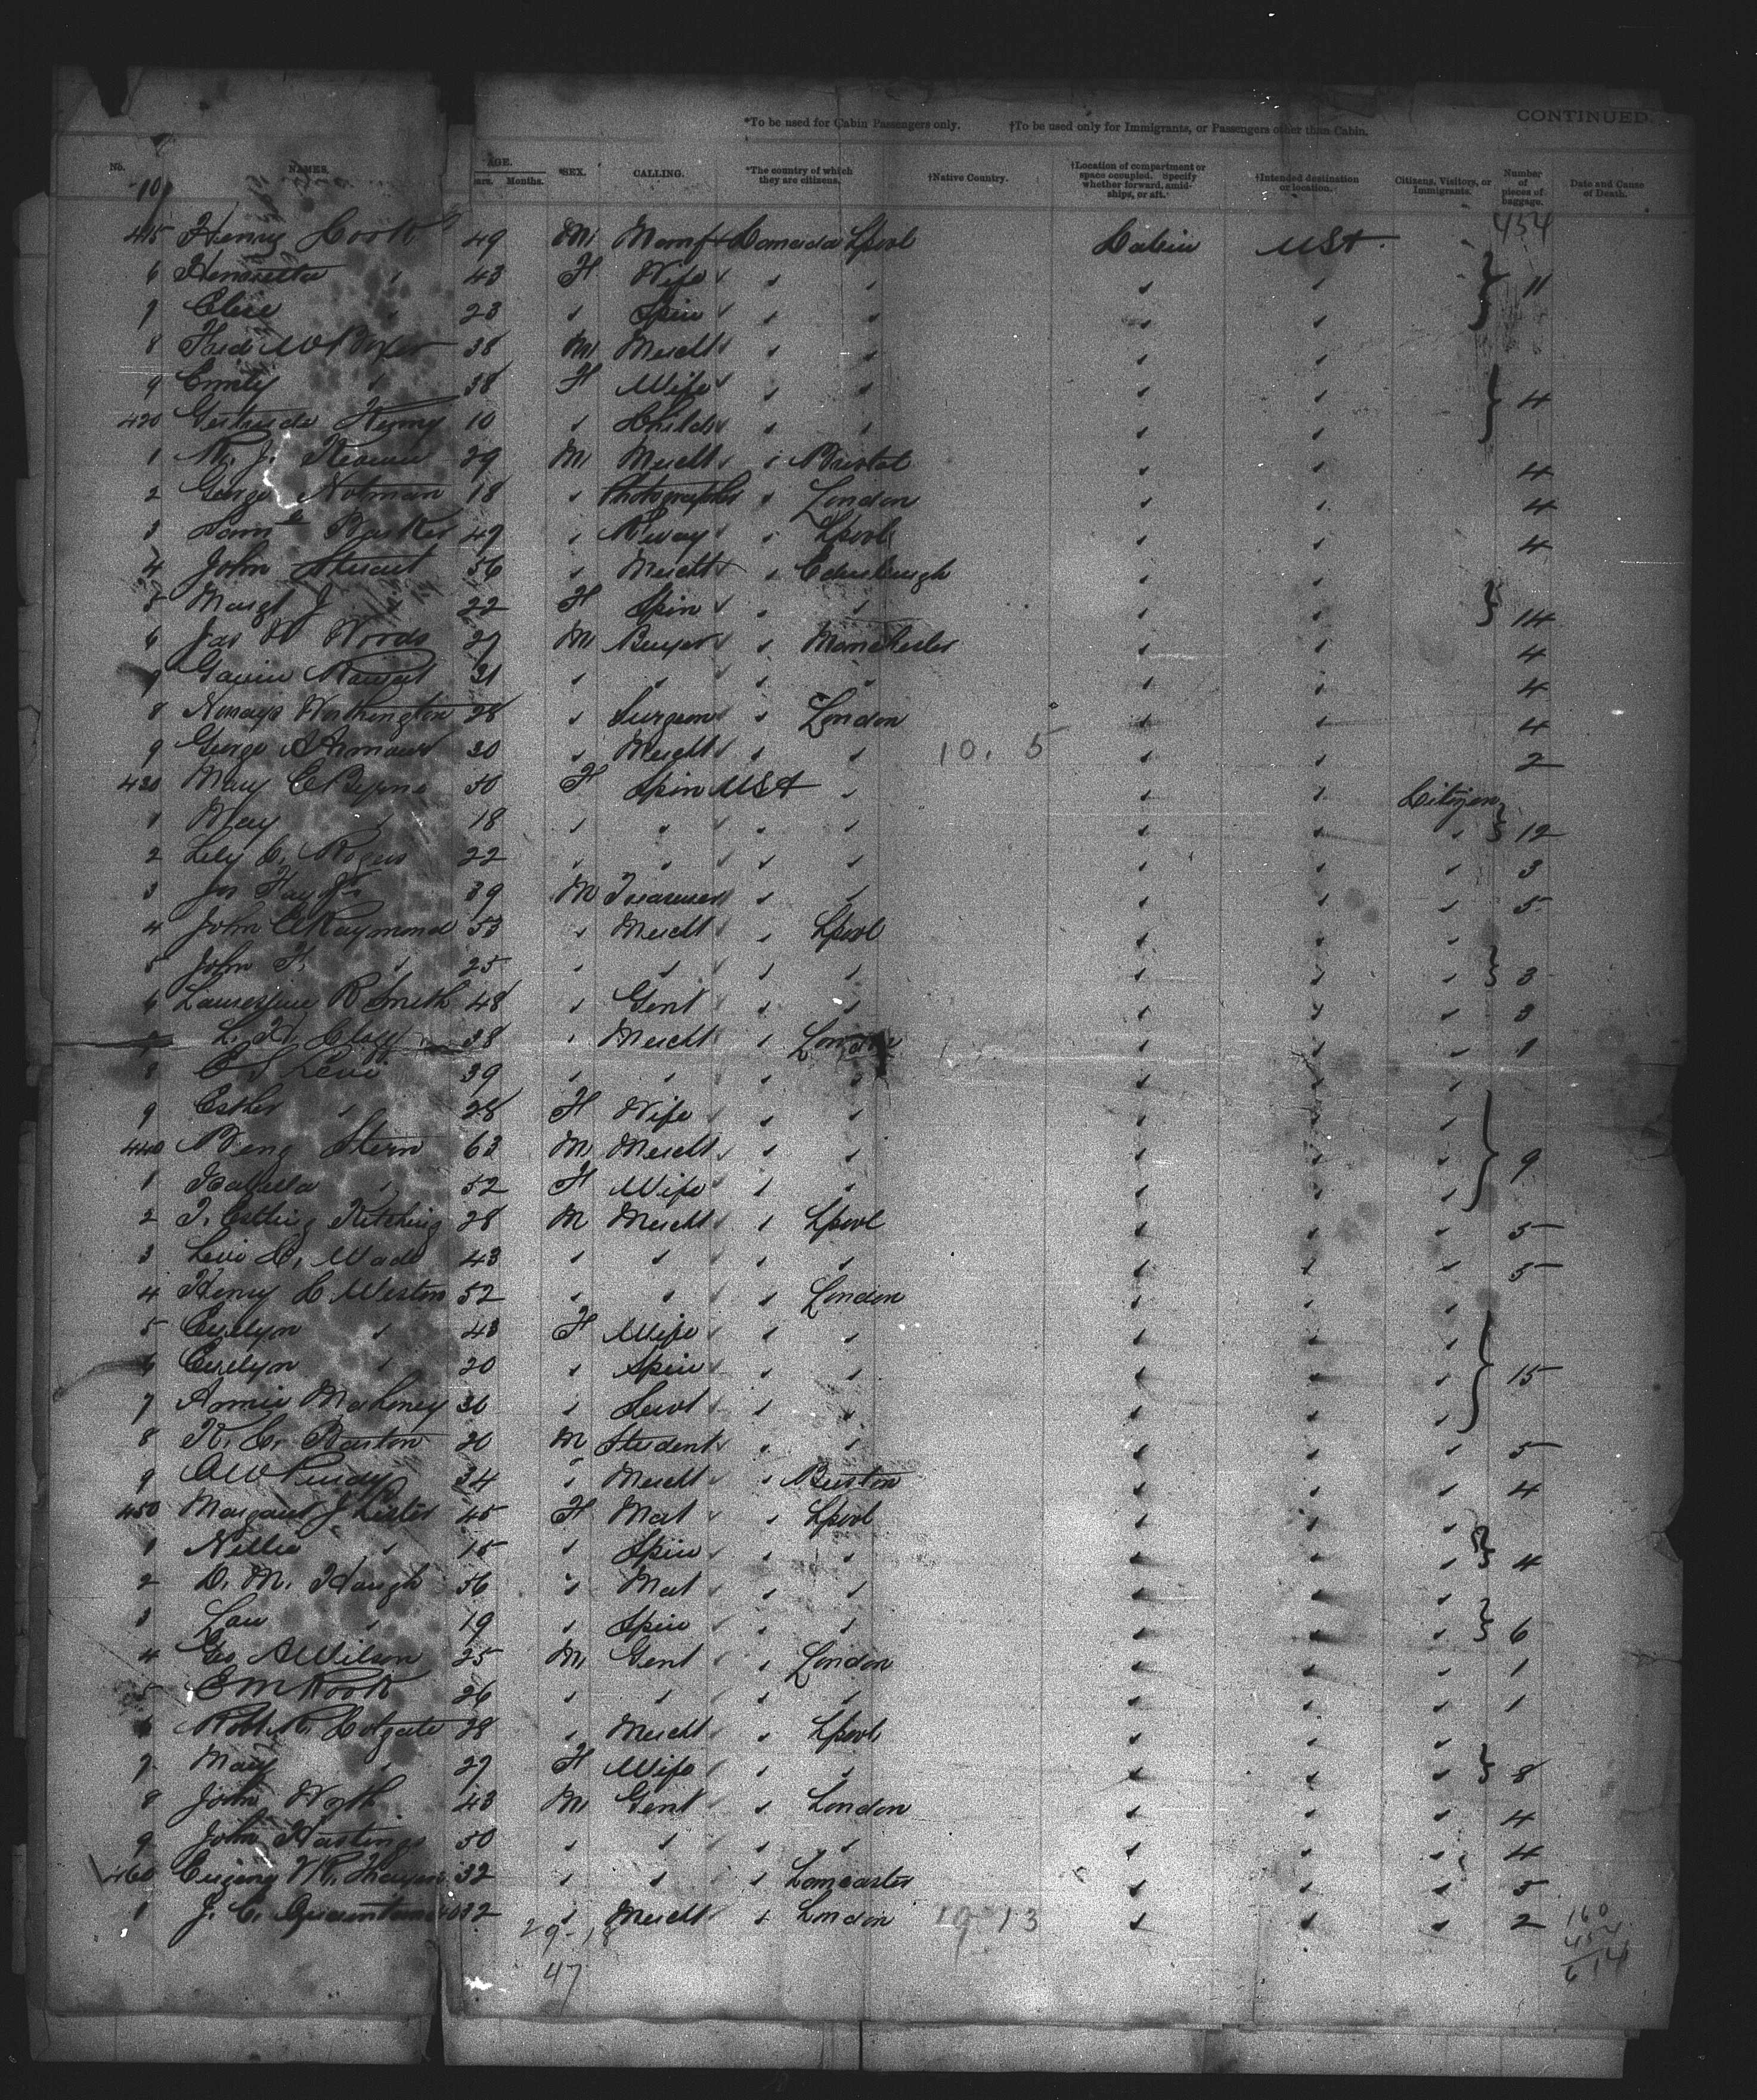 CONTINUED.
*To be used for Cabin Passengers only. †To be used only for Immigrants, or Passengers other than Cabin.
No. NAMES. AGE. Years. Months. *SEX. CALLING. *The country of which they are citizens. †Native Country. †Location of compartment or space occupied. Specify whether forward, amidships, or aft. †Intended destination or location. Citizens, Visitory, or Immigrants. Number of pieces of baggage. Date and Cause of Death.
10
454
415 Henry Cook 49 M Manf Canada Lpool Cabin USA
6 Henrietta " 43 F Wife " " " "
7 Elise " 23 " Spin " " " " } 11
8 38 M Mercht " " " "
9 Emily " 38 F Wife " " " "
420 Gertrude Henry 10 " Child " " " " } 4
1 R. J. 29 M Mercht " Bristol " " 4
2 George Notman 18 " Photographer " London " " 4
3 Saml Barker 49 " R'way " Lpool " " 4
4 John Stuart 56 " Mercht " Edinburgh " "
5 Margt J " 22 F Spin " " " " } 14
6 Jas W Woods 27 M Buyer " Manchester " " 4
7 Gavin 31 " " " " " " 4
8 Worthington 28 " Surgeon " London " " 4
9 George A 30 " Mercht " " 10. 5 " " 2
430 Mary E Byrne 50 F Spin USA " " " Citizen
1 May " 18 " " " " " " " } 12
2 Lily C. Rogers 22 " " " " " " " 3
3 Jos 39 M Treasurer " " " " " 5
4 John E Raymond 53 " Mercht " Lpool " " "
5 John F. " 25 " " " " " " " } 3
6 R Smith 48 " Gent " " " " 3
7 L. H. 38 " Mercht " London " " " 1
8 E S Levi 39 " " " " " " "
9 Esther " 28 F Wife " " " " "
440 Benj Stern 63 M Mercht " " " " " } 9
1 Isabella " 52 F Wife " " " " "
2 Kitching 28 M Mercht " Lpool " " " 5
3 Levi C. Wade 43 " " " " " " " 5
4 Henry C Weston 52 " " " London " " "
5 Evelyn " 43 F Wife " " " " "
6 Evelyn " 20 " Spin " " " " " } 15
7 Annie Mahoney 30 " Servt " " " " "
8 K. C. Barton 20 M Student " " " " " 5
9 34 " Mercht " " " " 4
450 Margaret J Lister 45 F Mat " Lpool " " "
1 Nellie " 15 " Spin " " " " " } 4
2 Haugh 56 " Mat " " " " "
3 " 19 " Spin " " " " " } 6
4 Geo A Wilson 25 M Gent " London " " " 1
5 E M Rook 26 " " " " " " " 1
6 Robt R. Colgate 28 " Mercht " Lpool " " "
7 May " 27 F Wife " " " " " } 8
8 John 43 M Gent " London " " " 4
9 John Hastings 50 " " " " " " " 4
460 Eugene V R 32 " " " Lancaster " " " 5
1 J. C. 32 " Mercht " London 19 13 " " " 2
29-18
47
160
454
614